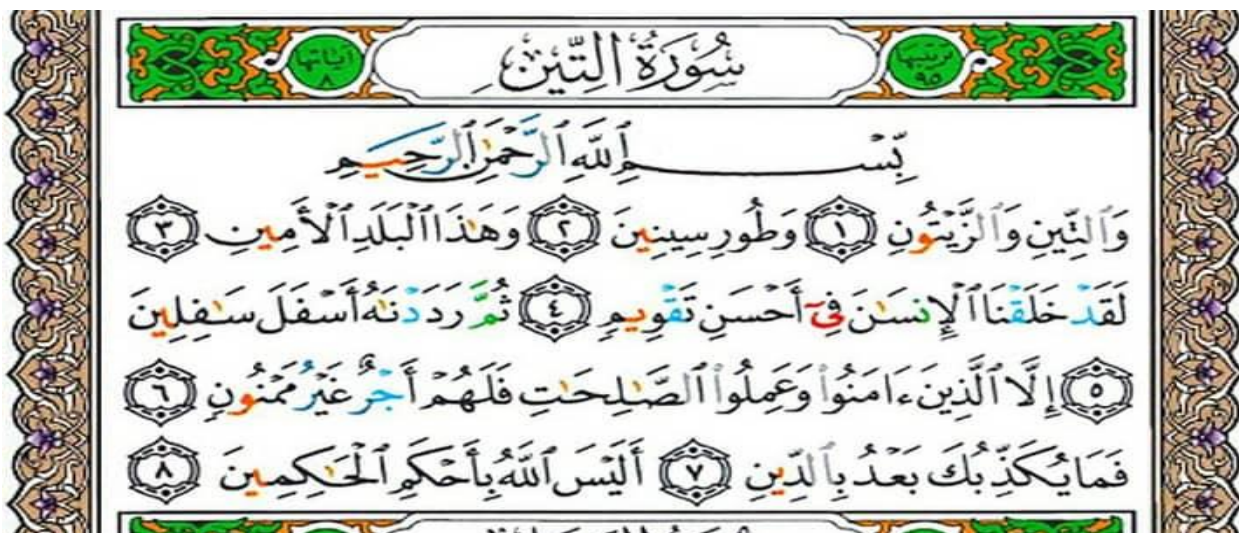 ترتيبها ٩٥ سُورَةُ التِّينِ آياتها ٨
بِّسْمِ ٱللَّهِ ٱلرَّحْمَٰنِ ٱلرَّحِيمِ
وَٱلتِّينِ وَٱلزَّيْتُونِ ١ وَطُورِ سِينِينَ ٢ وَهَٰذَا ٱلْبَلَدِ ٱلْأَمِينِ ٣
لَقَدْ خَلَقْنَا ٱلْإِنسَٰنَ فِىٓ أَحْسَنِ تَقْوِيمٍ ٤ ثُمَّ رَدَدْنَٰهُ أَسْفَلَ سَٰفِلِينَ
٥ إِلَّا ٱلَّذِينَ ءَامَنُوا۟ وَعَمِلُوا۟ ٱلصَّٰلِحَٰتِ فَلَهُمْ أَجْرٌ غَيْرُ مَمْنُونٍ ٦
فَمَا يُكَذِّبُكَ بَعْدُ بِٱلدِّينِ ٧ أَلَيْسَ ٱللَّهُ بِأَحْكَمِ ٱلْحَٰكِمِينَ ٨